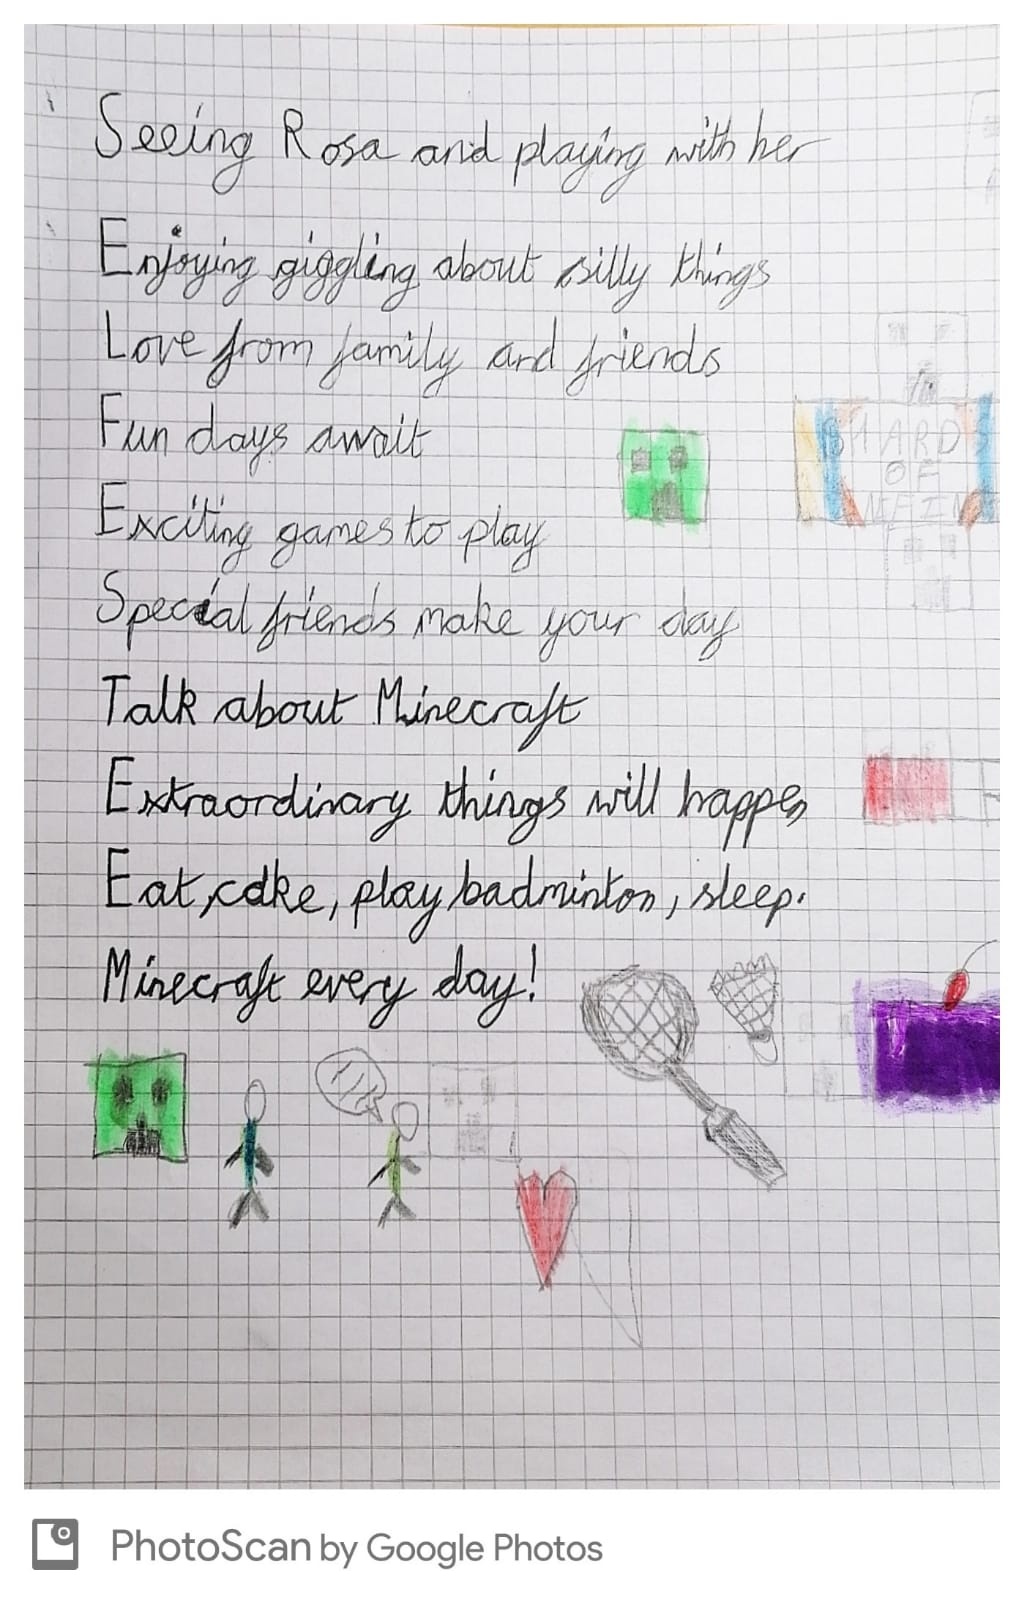 Seeing Rosa and playing with her
Enjoying giggling about silly things
Love from family and friends
Fun days await
Exciting games to play
Special friends make your day
Talk about Minecraft
Extraordinary things will happen
Eat, cake, play badminton, sleep.
Minecraft every day!
OF
PhotoScan by Google Photos